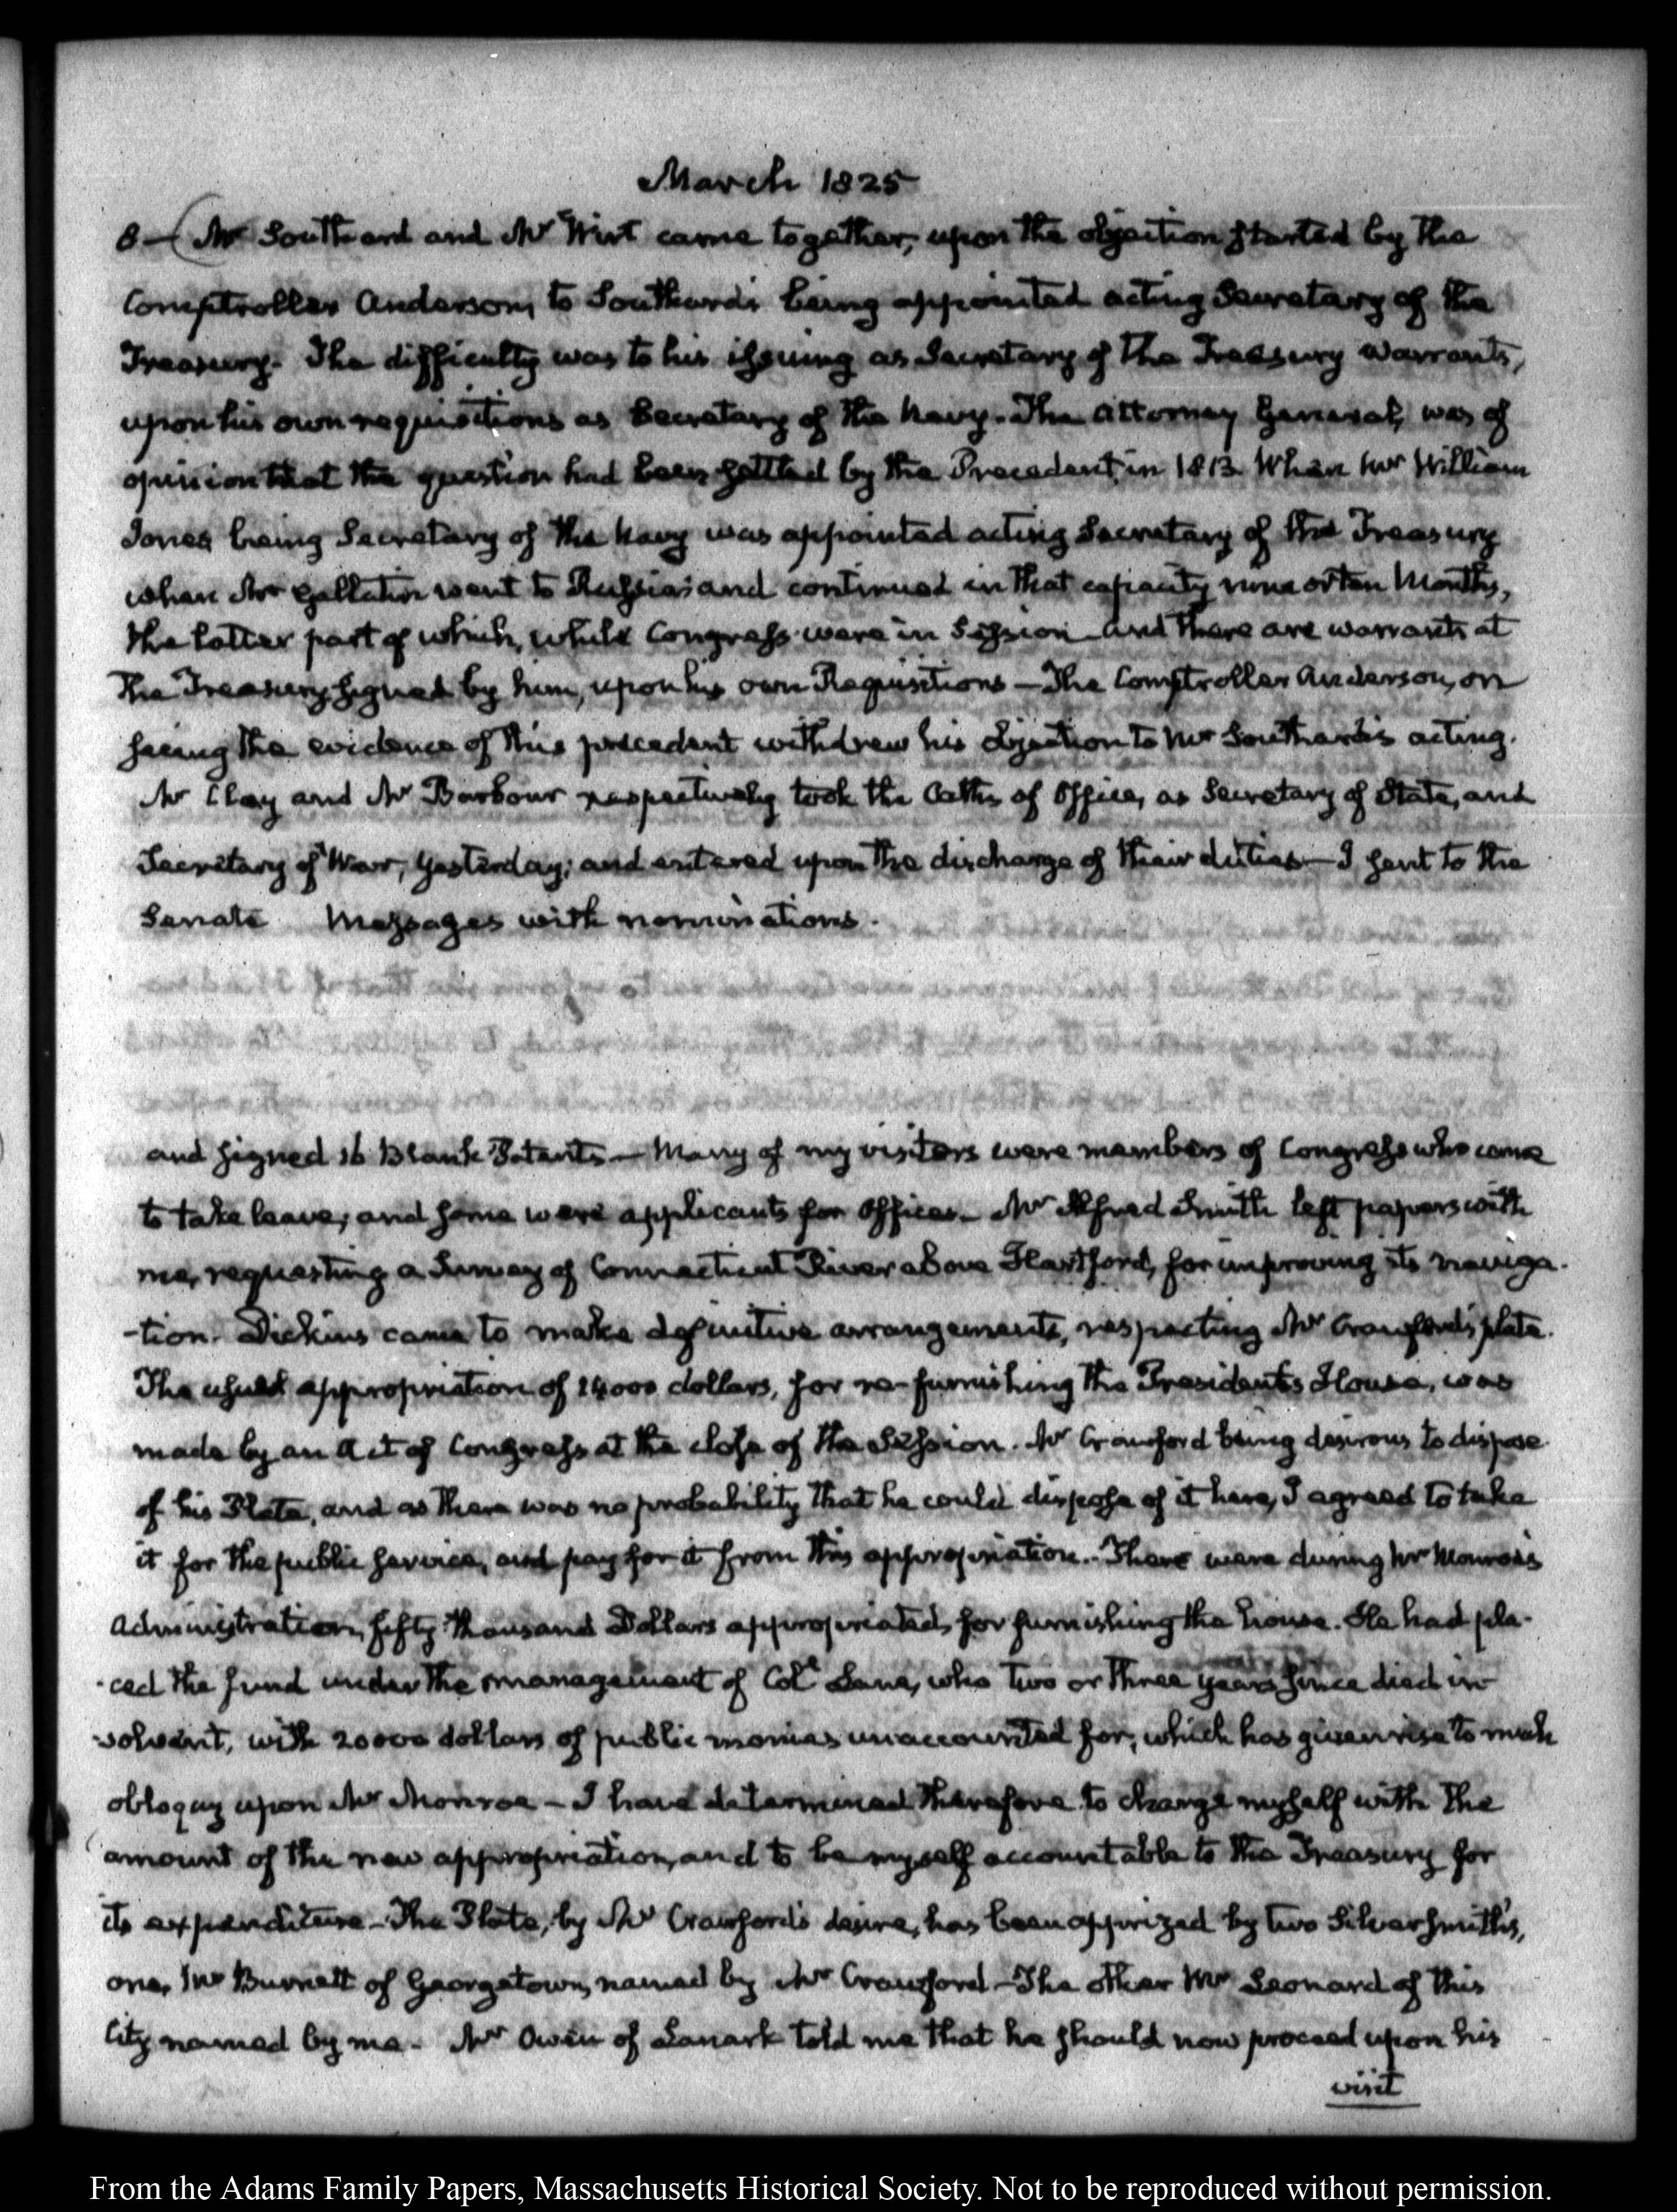 March 1825
8 — (Mr Southard and Mr Wirt came together, upon the objection started by the
Comptroller Anderson, to Southard's being appointed acting Secretary of the
Treasury. The difficulty was to his issuing as Secretary of the Treasury warrants,
upon his own requisitions as Secretary of the Navy. The Attorney General, was of
opinion that the question had been settled by the Precedent, in 1813. When Mr William
Jones being Secretary of the Navy was appointed acting Secretary of the Treasury
when Mr Gallatin went to Russia; and continued in that capacity nine or ten Months,
the latter part of which, while Congress were in Session — and there are warrants at
the Treasury signed by him, upon his own Requisitions — The Comptroller Anderson, on
seeing the evidence of this precedent withdrew his objection to Mr Southard's acting.
Mr Clay and Mr Barbour respectively took the Oaths of Office, as Secretary of State, and
Secretary of War, yesterday; and entered upon the discharge of their duties — I sent to the
Senate Messages with nominations.
and signed 16 Blank Patents — Many of my visitors were members of Congress who came
to take leave; and some were applicants for Offices — Mr Alfred Smith left papers with
me, requesting a Survey of Connecticut River above Hartford, for improving its naviga-
-tion. Dickins came to make definitive arrangements, respecting Mr Crawford's plate.
The usual appropriation of 14000 dollars, for re-furnishing the President's House, was
made by an Act of Congress at the close of the Session. Mr Crawford being desirous to dispose
of his Plate, and as there was no probability that he could dispose of it here, I agreed to take
it for the public service, and pay for it from this appropriation. There were during Mr Monroe's
Administration, fifty thousand Dollars appropriated, for furnishing the house. He had pla-
-ced the fund under the management of Coll Lane, who two or three years since died in-
-solvent, with 20000 dollars of public monies unaccounted for, which has given rise to much
obloquy upon Mr Monroe — I have determined therefore to charge myself with the
amount of the new appropriation, and to be myself accountable to the Treasury for
its expenditure — The Plate, by Mr Crawford's desire, has been apprized by two Silver smiths,
one, Mr Burnett of Georgetown, named by Mr Crawford — The other Mr Leonard of this
City named by me — Mr Owen of Lanark told me that he should now proceed upon his
visit
From the Adams Family Papers, Massachusetts Historical Society. Not to be reproduced without permission.